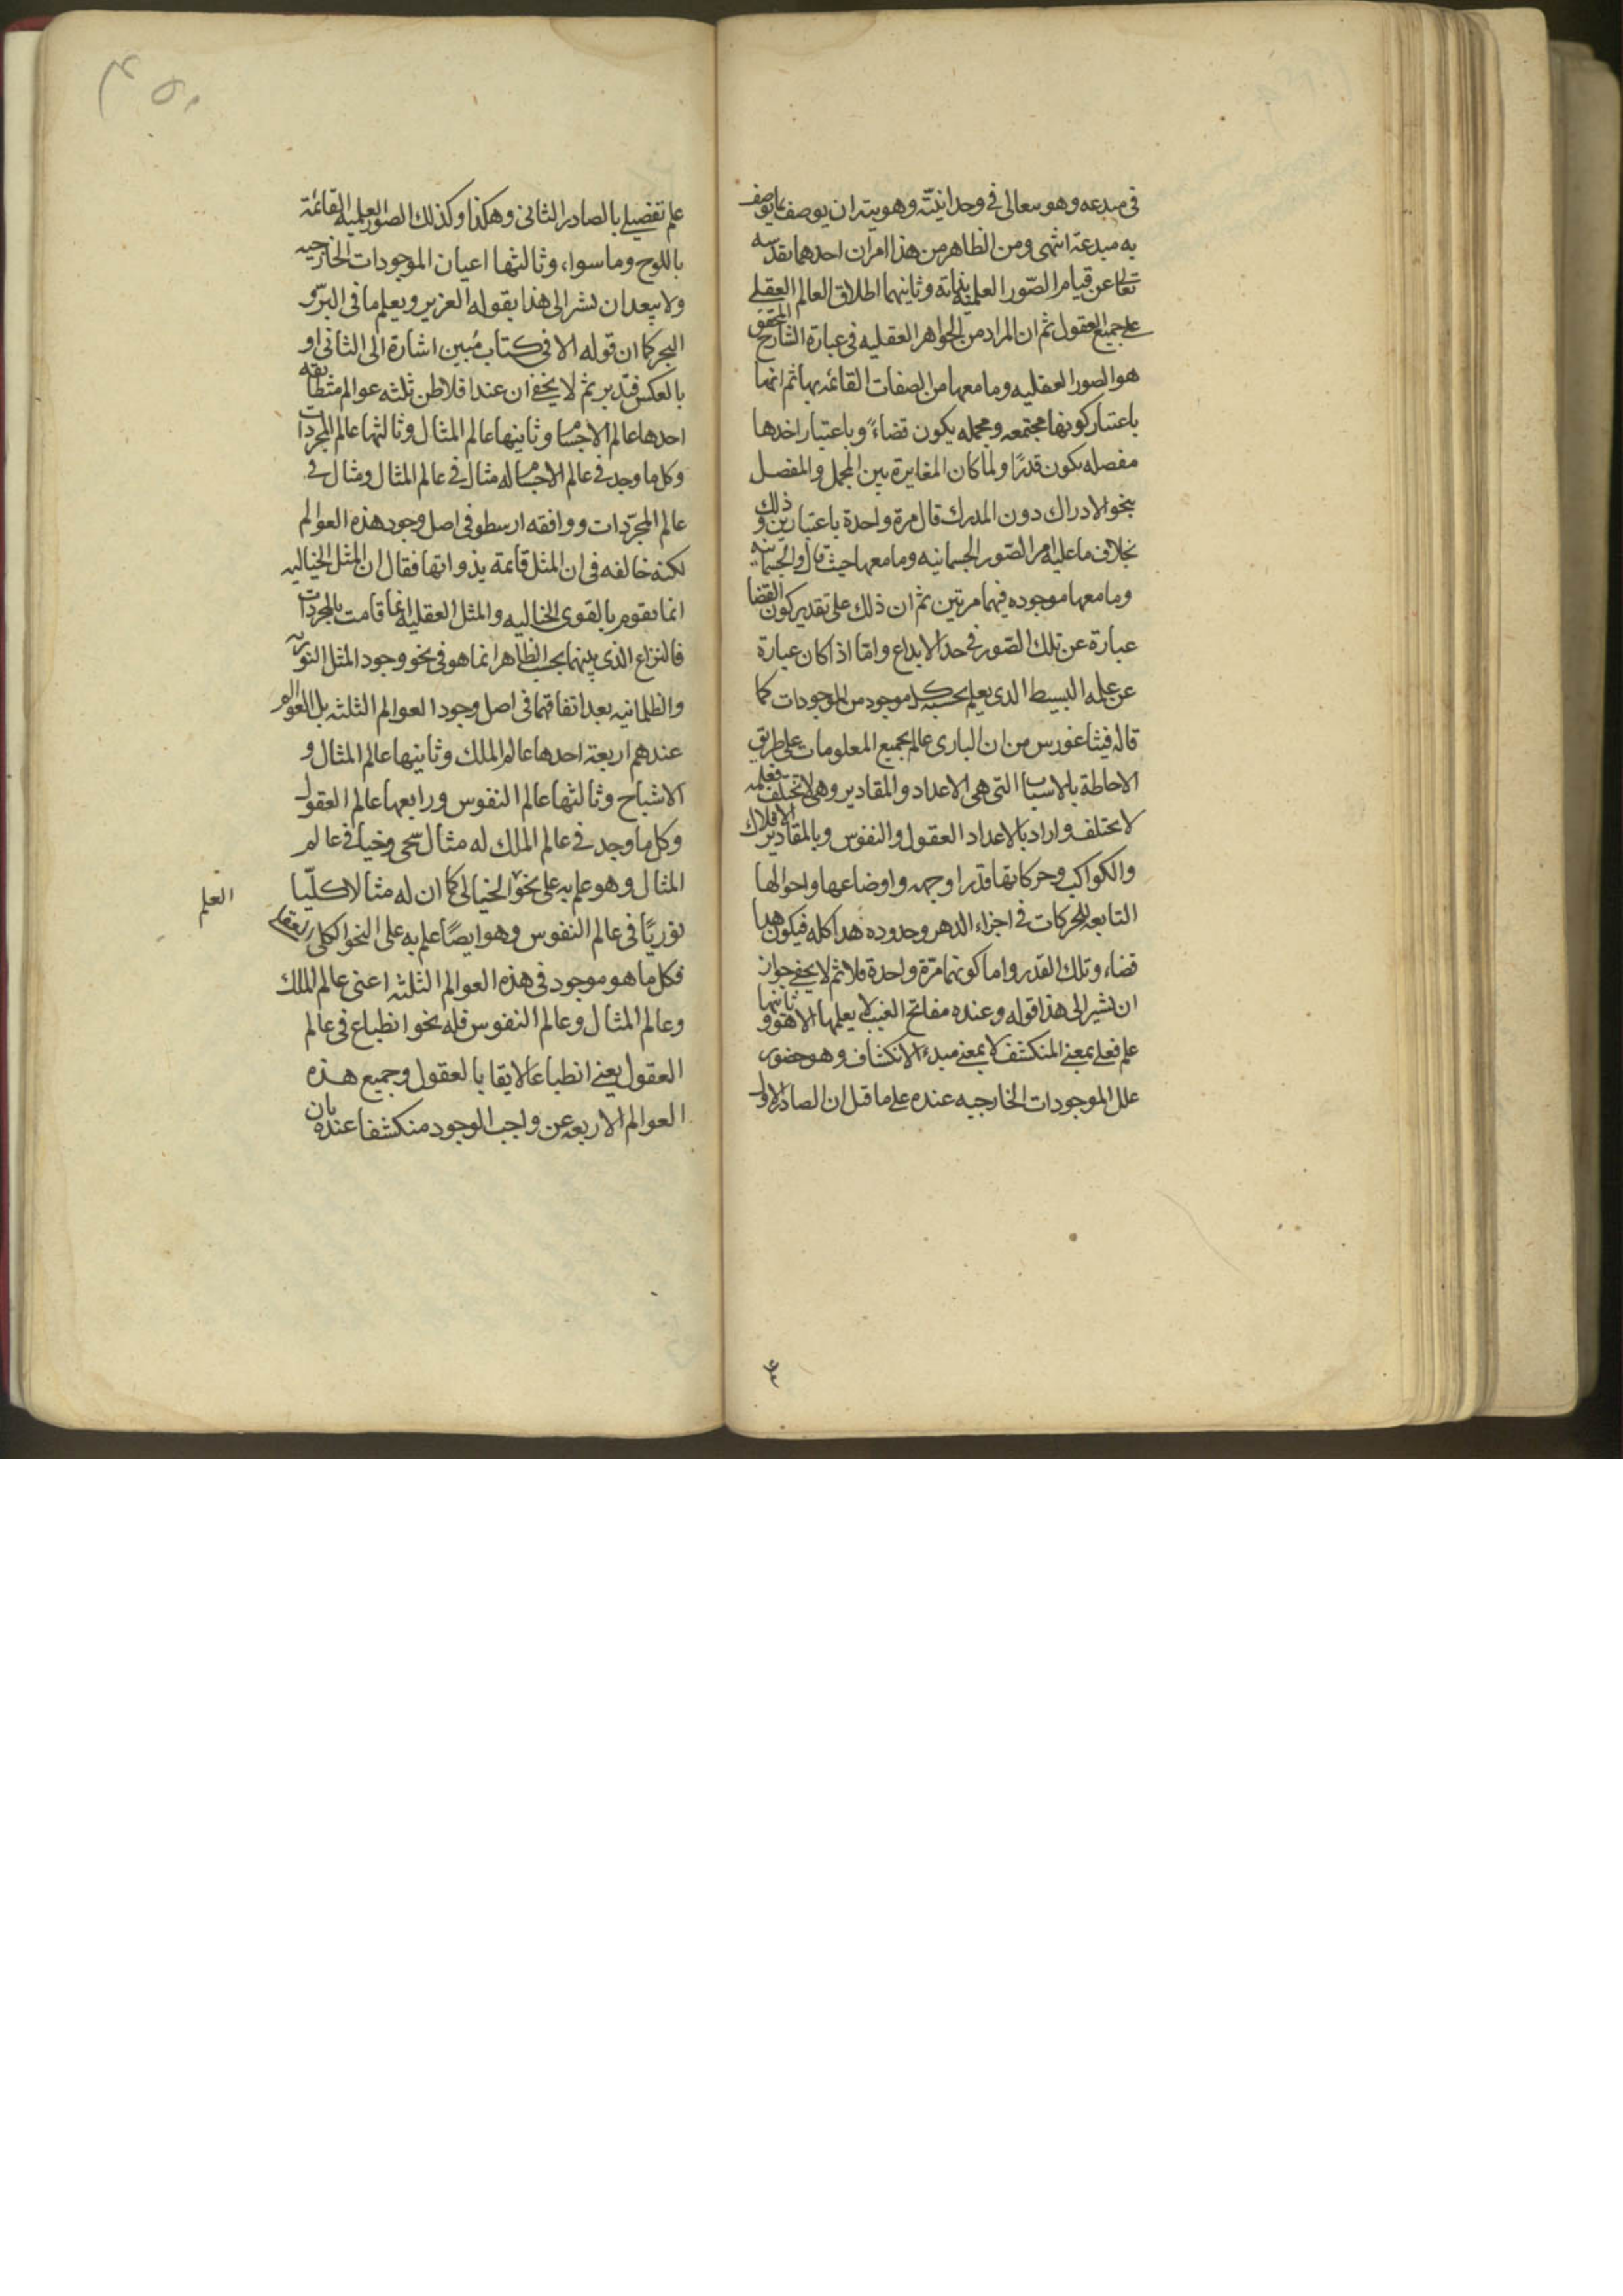 فى مبدعه وهو متعالى فى وحدانيته وهويته ان يوصف بما يوصف
به مبدعة انتهى ومن الظاهر من هذا امران احدهما تقدسه
تعالى عن قيام الصّور العلميه بذاته وثانيهما اطلاق العالم العقلى
على جميع العقول ثم ان المراد من الجواهر العقليه فى عبارة الشارح المحقق
هو الصور العقليه وما معها من الصفات القائمه بها ثم انها
باعتبار كونها مجتمعه ومجمله يكون قضاءً وباعتبار اخذها
مفصله يكون قدرًا ولما كان المغايرة بين المجمل والمفصل
بنحو الادراك دون المدرك قال مرة واحدة باعتبارين وذلك
بخلاف ما عليه امر الصّور الجسمانيه وما معها حيث قال والجسمانيه
وما معها موجوده فيهما مرتين ثم ان ذلك على تقدير كون القضا
عبارة عن تلك الصّور فى حد الابداع وامّا اذا كان عبارة
عن علمه البسيط الذى يعلم بحسبه كل موجود من الموجودات كما
قاله فيثاغورس من ان البارى عالم بجميع المعلومات على طريق
الاحاطة بالاسباب التى هى الاعداد والمقادير وهى لا تختلف فعلمه
لا يختلف واراد بالاعداد العقول والنفوس وبالمقادير الافلاك
والكواكب وحركاتها قدرا وجهه واوضاعها واحوالها
التابعه للحركات فى اجزاء الدهر وحدوده هذا كله فيكون هذا
قضاء وتلك القدر واما كونهما مرّة واحدة فلا ثم لا يخفى جواز
ان نشير الى هذا قوله وعنده مفاتح الغيب لا يعلمها الا هو وثانيها
علم فعلى بمعنى المنكشف لا بمعنى مبدء الانكشاف وهو حضور
علل الموجودات الخارجيه عنده على ما قيل ان الصادر الاول
علم تفصيلى بالصادر الثانى وهكذا وكذلك الصور العلميه القائمة
باللوح وما سواه وثالثها اعيان الموجودات الخارجيه
ولا يبعد ان نشير الى هذا بقوله العزيز ويعلم ما فى البرّ و
البحر كما ان قوله الا فى كتاب مُبين اشارة الى الثانى او
بالعكس فتدبر ثم لا يخفى ان عند افلاطن ثلثه عوالم متطابقه
احدها عالم الاجسام وثانيها عالم المثال وثالثها عالم المجردات
وكل ما وجد فى عالم الاجسام له مثال فى عالم المثال ومثال فى
عالم المجرّدات ووافقه ارسطو فى اصل وجود هذه العوالم
لكنه خالفه فى ان المثل قائمة بذواتها فقال ان المثل الخياليه
انما تقوم بالقوى الخياليه والمثل العقليه انما قامت بالمجردات
فالنزاع الذى بينهما بحسب الظاهر انما هو فى نحو وجود المثل النوريه
والظلمانيه بعد اتفاقهما فى اصل وجود العوالم الثلثه بل العوالم
عندهم اربعة احدها عالم الملك وثانيها عالم المثال و
الاشباح وثالثها عالم النفوس ورابعها عالم العقول
وكل ما وجد فى عالم الملك له مثال شبحى وخيالى فى عالم
المثال وهو علم به على نحو الخيالى كما ان له مثالا كليّا
نوريًا فى عالم النفوس وهو ايضًا علم به على النحو الكلى
العلم
فكل ما هو موجود فى هذه العوالم الثلثه اعنى عالم الملك
وعالم المثال وعالم النفوس فله نحو انطباع فى عالم
العقول يعنى انطباعا لايقا بالعقول وجميع هذه
العوالم الاربعه عن واجب الوجود منكشفا عنده بان